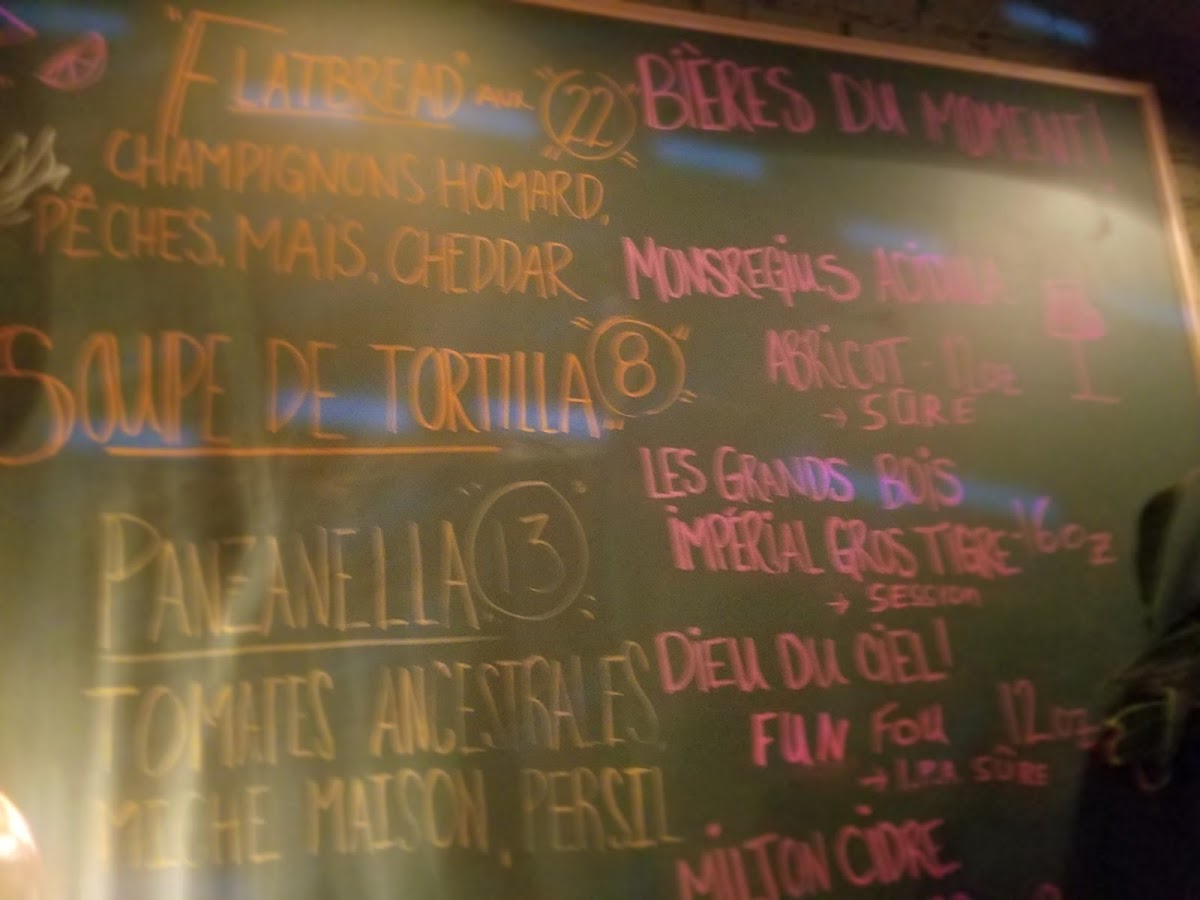 "FLATBREAD" aux 22
CHAMPIGNONS HOMARD,
PÊCHES, MAÏS, CHEDDAR
SOUPE DE TORTILLA 8
PANZANELLA 13
TOMATES ANCESTRALES,
MICHE MAISON, PERSIL
BIÈRES DU MOMENT!
MONSREGIUS
ABRICOT - 12oz
→ SÛRE
LES GRANDS BOIS
IMPÉRIAL GROS TIGRE - 16oz
→ SESSION
DIEU DU CIEL!
FUN FOU 12oz
→ I.P.A SÛRE
MILTON CIDRE